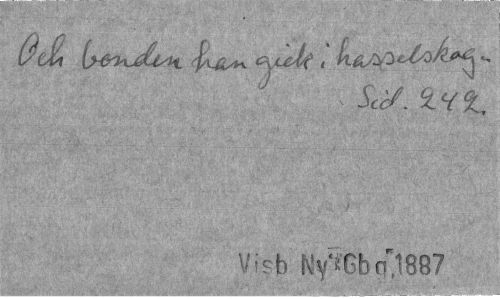 Och bonden han gick i hasselskog-
Sid. 242.
Visb Ny Gbg, 1887